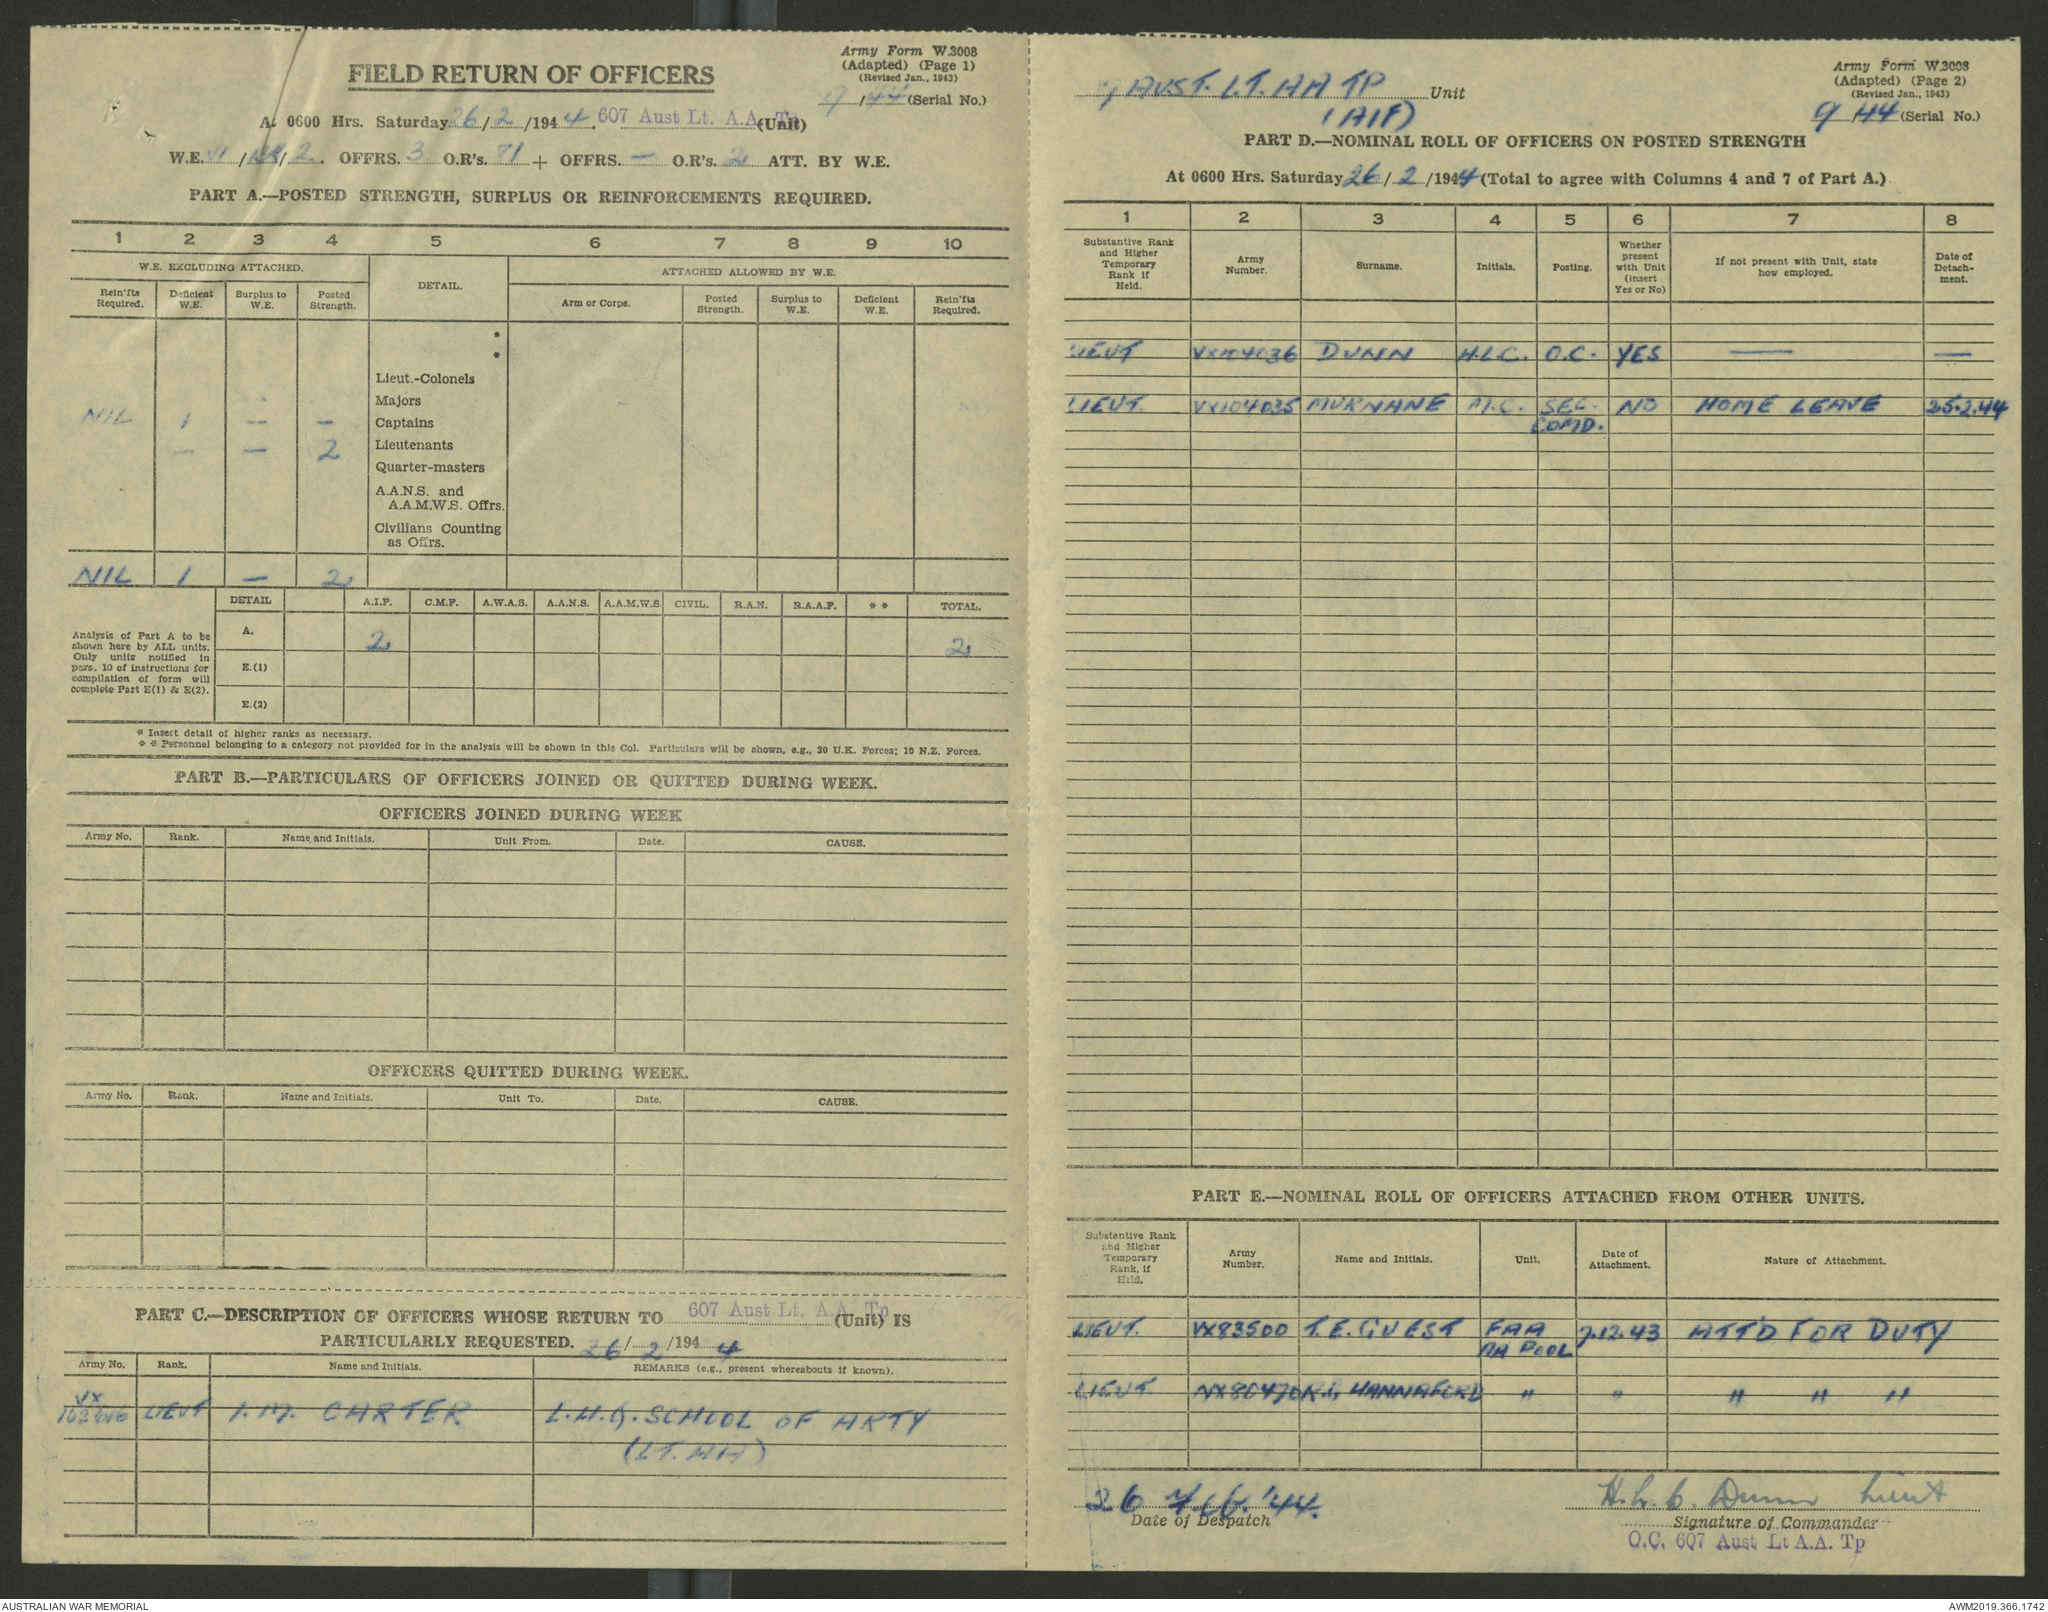 Army Form W.3008
(Adapted) (Page 1)
(Revised Jan., 1943)
FIELD RETURN OF OFFICERS
9/44 (Serial No.)
At 0600 Hrs. Saturday 26/2/1944. 607 Aust Lt. A.A. Tp (Unit)
W.E. VI/ /2. OFFRS. 3 O.R's. 81 + OFFRS. — O.R's. 2 ATT. BY W.E.
PART A.—POSTED STRENGTH, SURPLUS OR REINFORCEMENTS REQUIRED.
1 2 3 4 5 6 7 8 9 10
W.E. EXCLUDING ATTACHED. DETAIL. ATTACHED ALLOWED BY W.E.
Rein'fts Required. Deficient W.E. Surplus to W.E. Posted Strength. Arm or Corps. Posted Strength. Surplus to W.E. Deficient W.E. Rein'fts Required.
*
*
Lieut.-Colonels
Majors
NIL 1 — — Captains
— — 2 Lieutenants
Quarter-masters
A.A.N.S. and
A.A.M.W.S. Offrs.
Civilians Counting
as Offrs.
NIL 1 — 2
DETAIL A.I.F. C.M.F. A.W.A.S. A.A.N.S. A.A.M.W.S. CIVIL. R.A.N. R.A.A.F. * * TOTAL.
Analysis of Part A to be
shown here by ALL units.
Only units notified in
para. 10 of instructions for
compilation of form will
complete Part E(1) & E(2).
A. 2 2
E.(1)
E.(2)
* Insert detail of higher ranks as necessary.
* * Personnel belonging to a category not provided for in the analysis will be shown in this Col. Particulars will be shown, e.g., 20 U.K. Forces; 10 N.Z. Forces.
PART B.—PARTICULARS OF OFFICERS JOINED OR QUITTED DURING WEEK.
OFFICERS JOINED DURING WEEK
Army No. Rank. Name and Initials. Unit From. Date. CAUSE.
OFFICERS QUITTED DURING WEEK.
Army No. Rank. Name and Initials. Unit To. Date. CAUSE.
PART C.—DESCRIPTION OF OFFICERS WHOSE RETURN TO 607 Aust Lt. A.A. Tp (Unit) IS
PARTICULARLY REQUESTED. 26/2/1944
Army No. Rank. Name and Initials. REMARKS (e.g., present whereabouts if known).
VX
LIEUT I.M. CARTER L.H.Q. SCHOOL OF ARTY
(LT. AA)
Army Form W.3008
(Adapted) (Page 2)
(Revised Jan., 1943)
7 AUST. LT. AA TP Unit
(AIF)
9/44 (Serial No.)
PART D.—NOMINAL ROLL OF OFFICERS ON POSTED STRENGTH
At 0600 Hrs. Saturday 26/2/1944 (Total to agree with Columns 4 and 7 of Part A.)
1 2 3 4 5 6 7 8
Substantive Rank and Higher Temporary Rank if Held. Army Number. Surname. Initials. Posting. Whether present with Unit (insert Yes or No) If not present with Unit, state how employed. Date of Detach-ment.
LIEUT VX104036 DUNN H.L.C. O.C. YES — —
LIEUT. VX104035 MURNANE M.C. SEC. NO HOME LEAVE 25.2.44
COMD.
PART E.—NOMINAL ROLL OF OFFICERS ATTACHED FROM OTHER UNITS.
Substantive Rank and Higher Temporary Rank, if Held. Army Number. Name and Initials. Unit. Date of Attachment. Nature of Attachment.
LIEUT. VX83500 T.E. GUEST FAA 7.12.43 ATT'D FOR DUTY
AA POOL
LIEUT NX80470 R.G. HANNAFORD " " " " "
26 Feb. '44.
Date of Despatch
H.L.C. Dunn Lieut
Signature of Commander
O.C. 607 Aust Lt A.A. Tp
AUSTRALIAN WAR MEMORIAL
AWM2019.366.1742